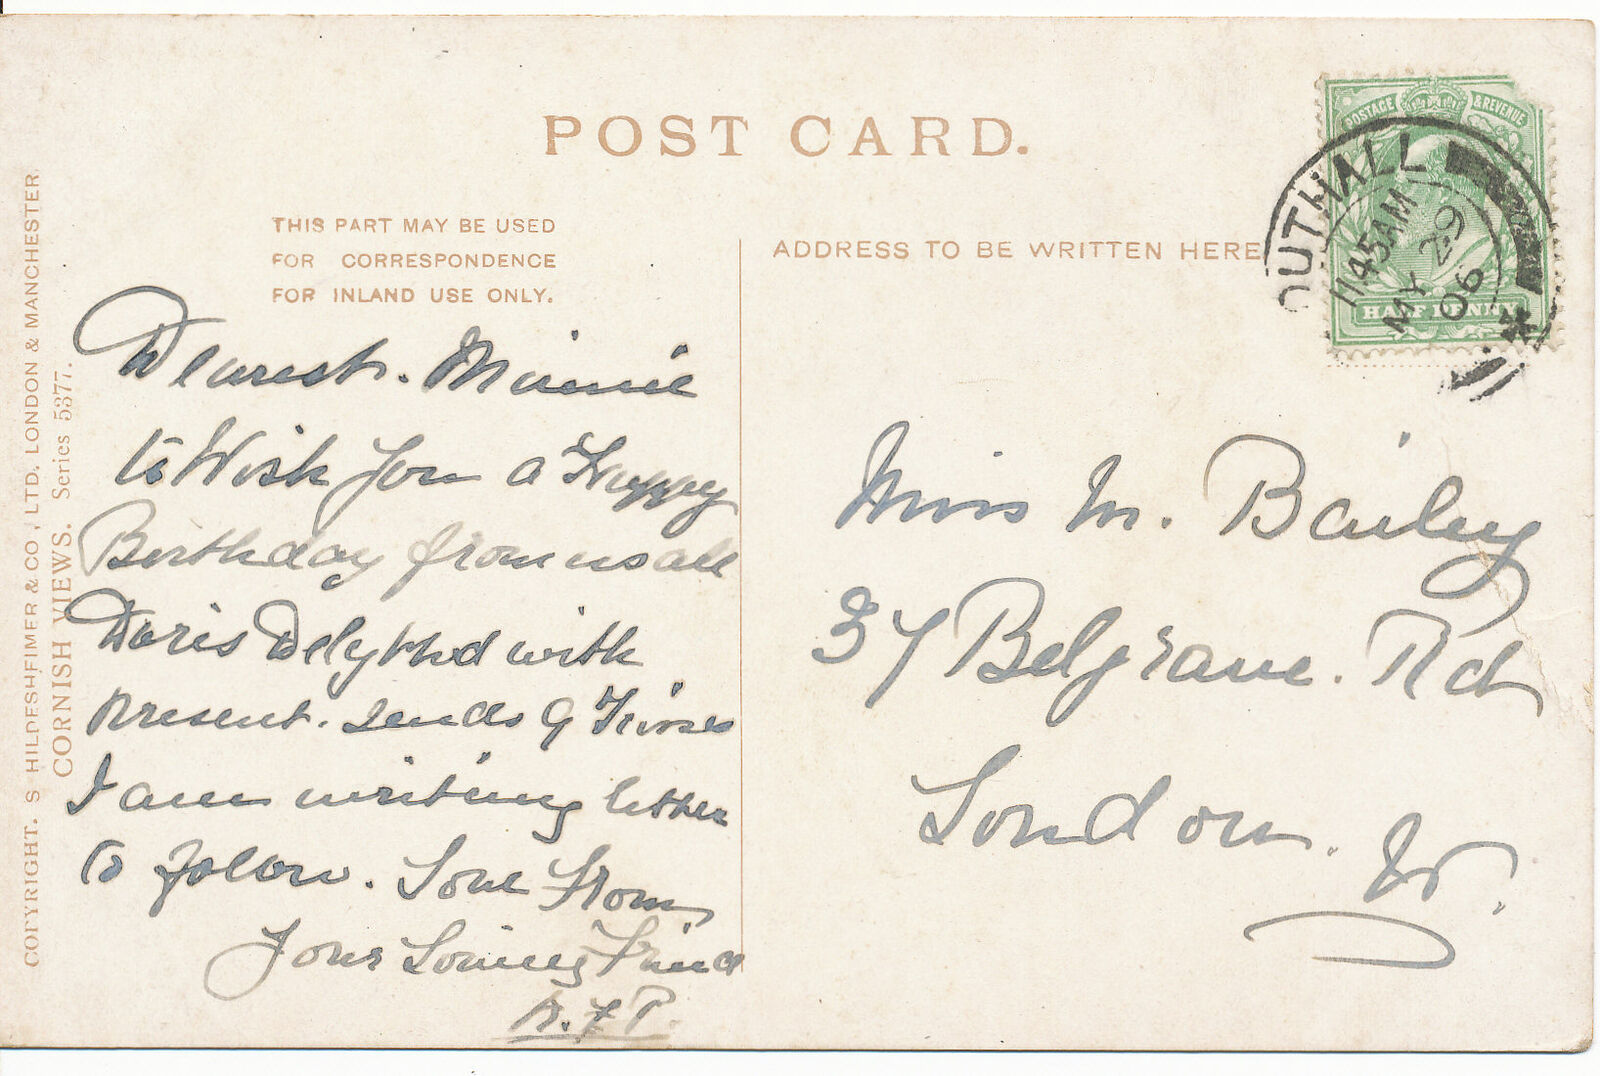 POST CARD.
THIS PART MAY BE USED
FOR CORRESPONDENCE
FOR INLAND USE ONLY.
ADDRESS TO BE WRITTEN HERE
POSTAGE & REVENUE
HALF PENNY
OUTHALL
1145AM
MY 29
06
COPYRIGHT. S HILDESHEIMER & CO, LTD. LONDON & MANCHESTER.
CORNISH VIEWS. Series 5377.
Dearest. Minnie
to Wish You a Happy
Birthday from us all
Doris Delythed with
Present. Sends 9 Kisses
I am writing letter
to follow. Love From
Your Loving Friend
F P.
Miss M. Bailey
37 Belgrave. Rd
London. W.